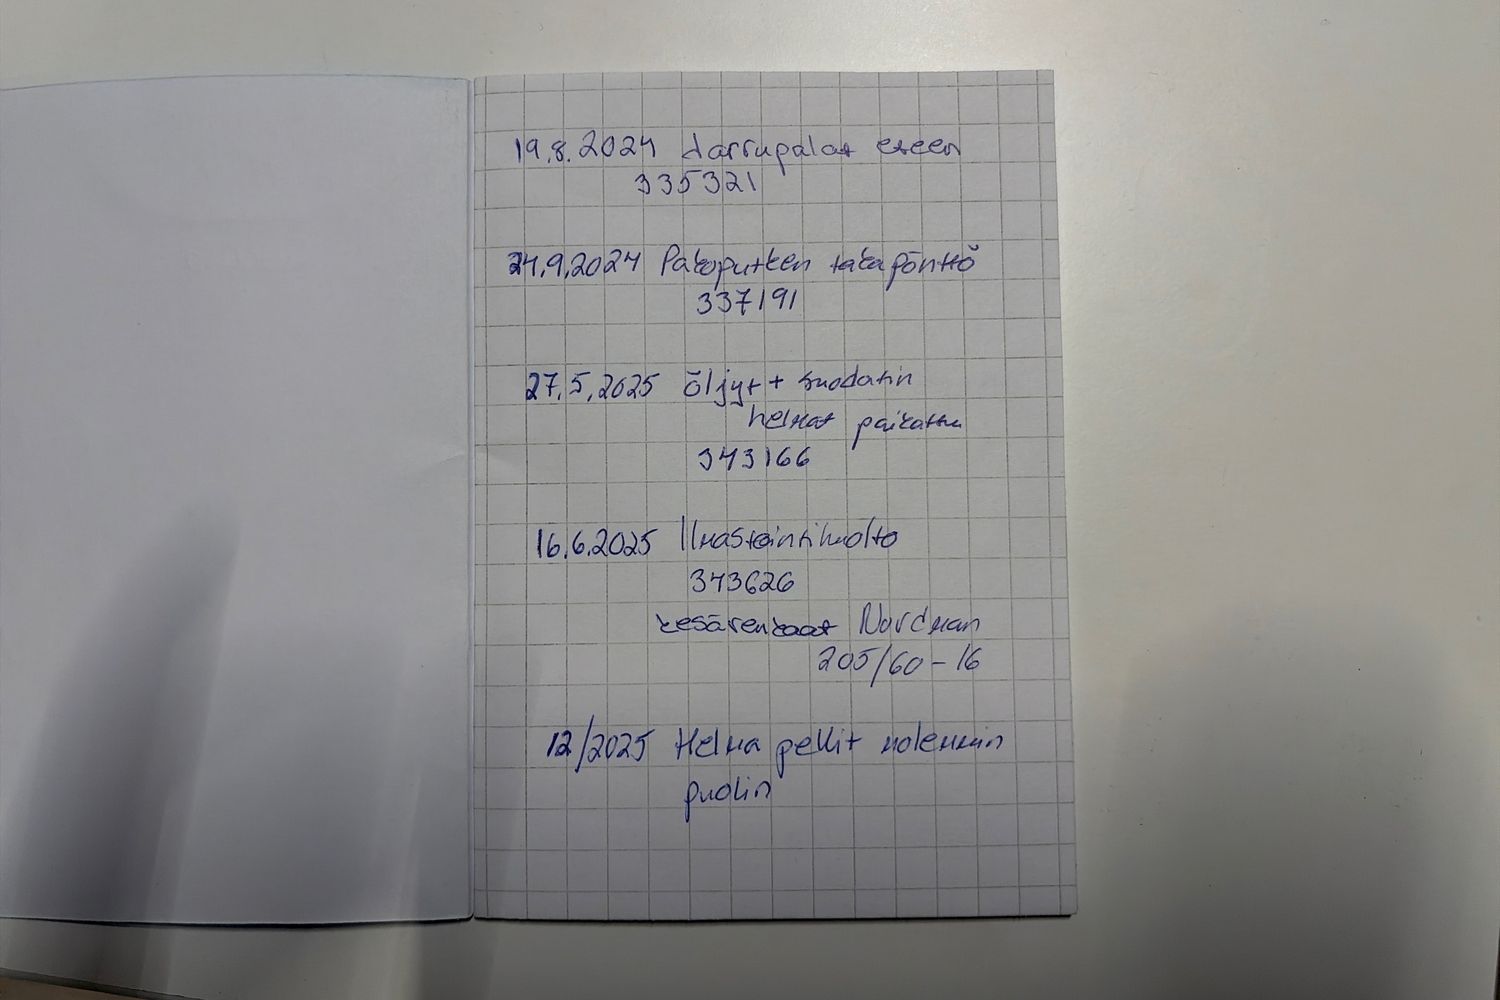 19.8.2024 Jarrupalat eteen
335321
24.9.2024 Pakoputken takapönttö
337191
27.5.2025 öljyt + suodatin
helmat paikattu
343166
16.6.2025 Ilmastointihuolto
343626
kesärenkaat Nordman
205/60-16
12/2025 Helma pellit molemmin
puolin